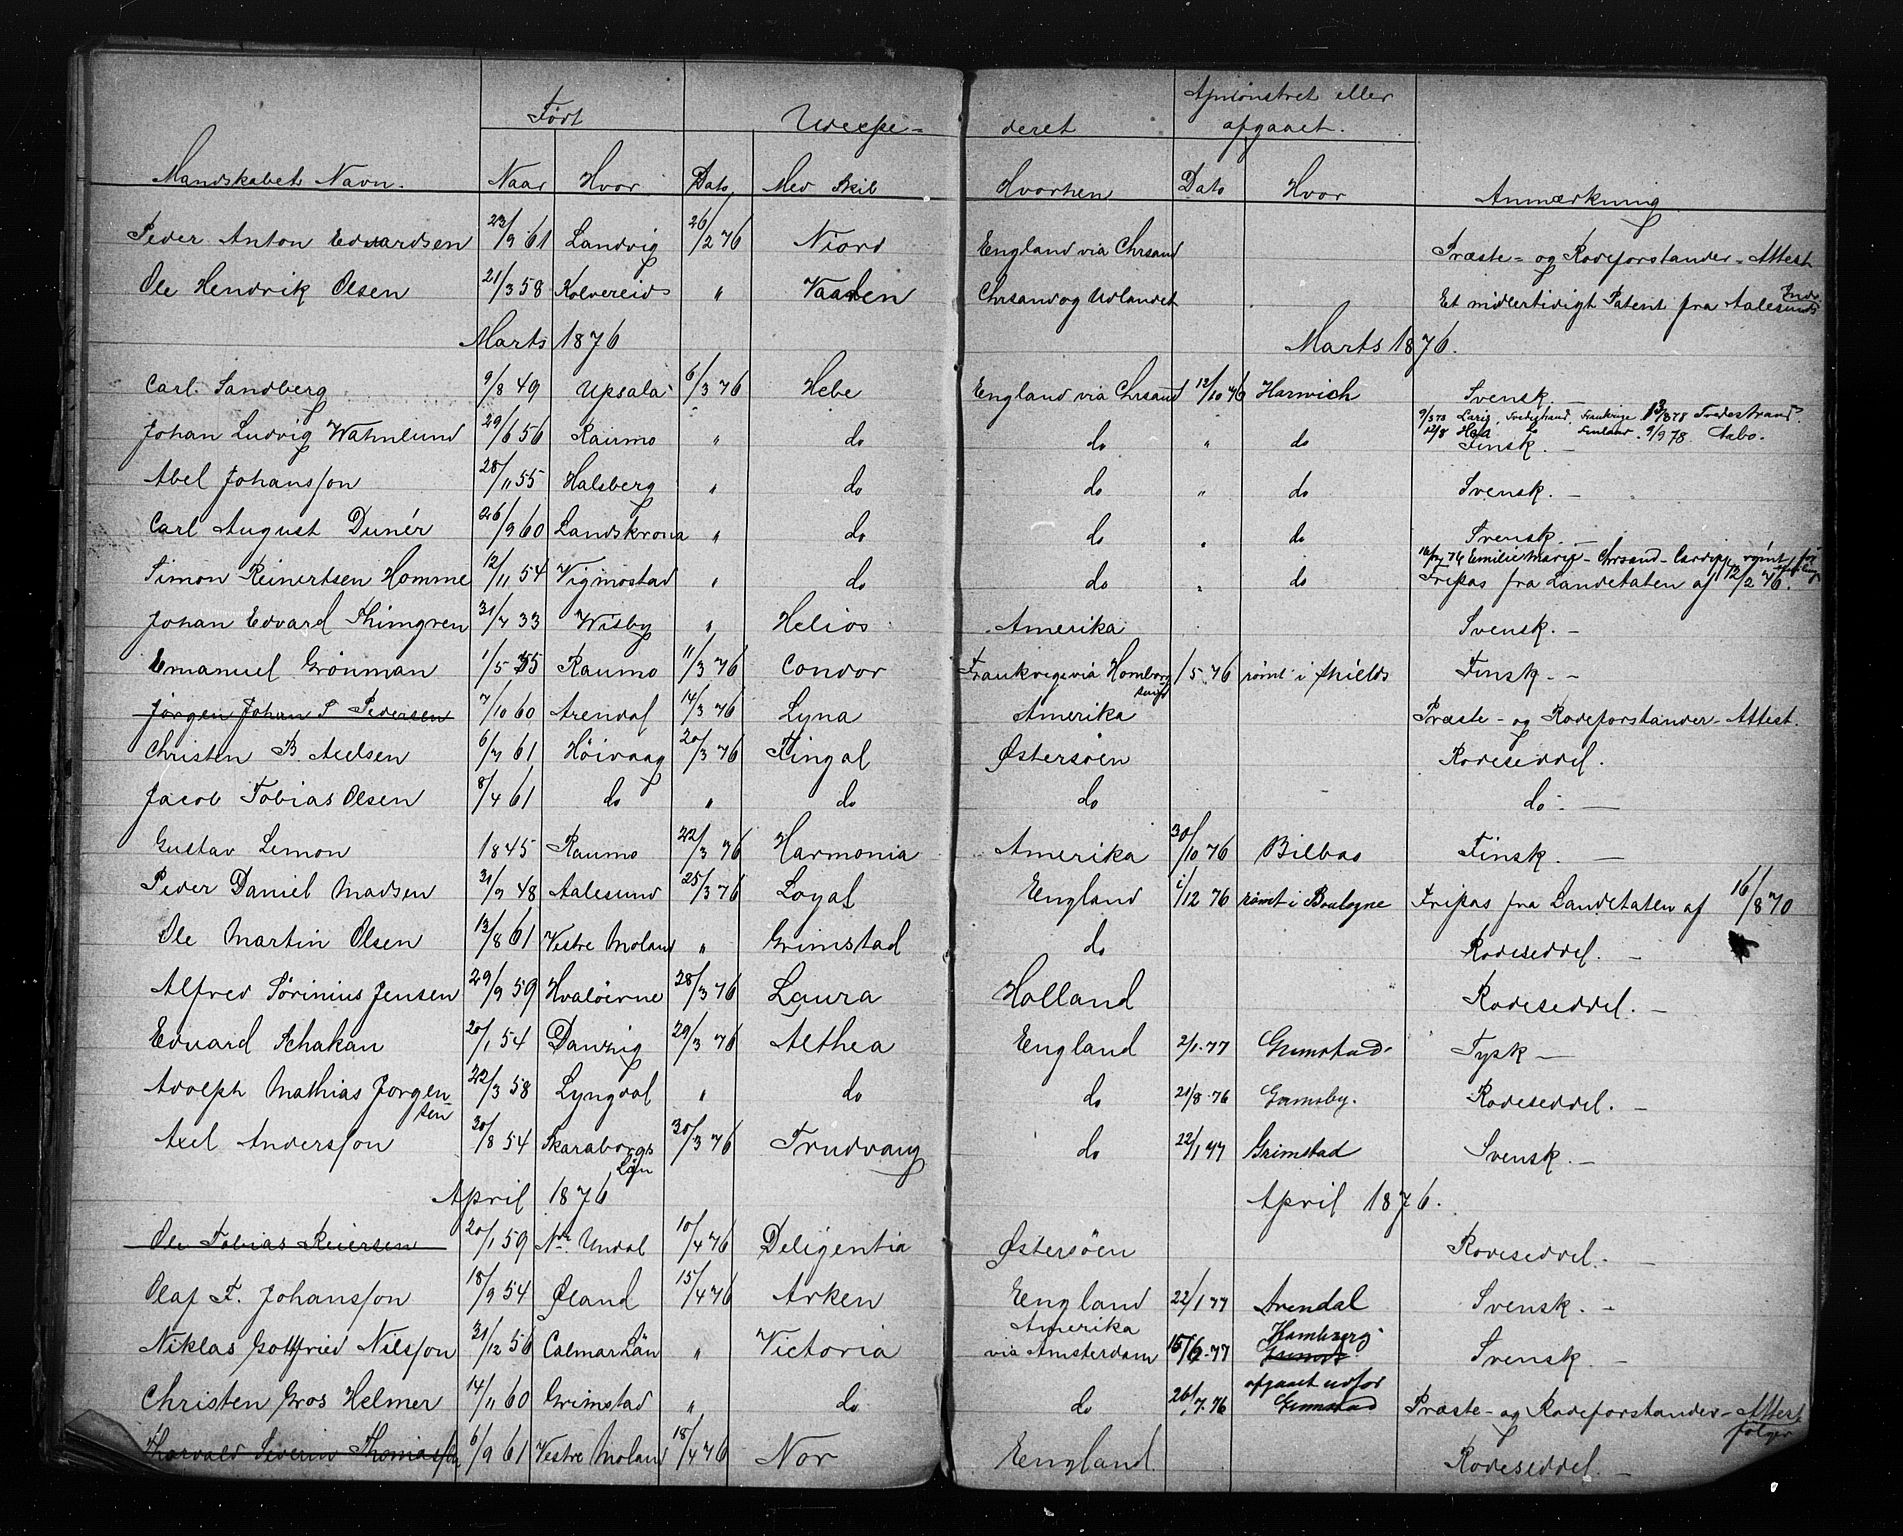 Født Udexpe- deret Afmønstret eller
afgaaet.
Mandskabets Navn. Naar Hvor Dato Med Skib Hvorhen Dato Hvor Anmærkning
Peder Anton Edvardsen 23/9 61 Landvig 26/2 76 Niord England via Chrsand Præste- og Rodeforstander-Attest
Ole Hendrik Olsen 21/3 58 Kolvereid " Vaaren Chrsand og Udlandet Et midlertidigt Patent fra Aalesunds Indr.
Marts 1876 Marts 1876.
Carl Sandberg 9/8 49 Upsala 6/3 76 Hebe England via Chrsand 12/10 76 Harwich Svensk. —
9/3 78 Laris. Tvedestrand. Frankrige 13/8 78 Tvedestrand.
Johan Ludvig Wahnlund 29/6 56 Raumo " do do " do 12/8 Finland. 9/9 78 Aabo.
Finsk. —
Abel Johansson 28/11 55 Halsberg " do do " do Svensk. —
Carl August Dunér 26/9 60 Landskrona " do do " do Svensk. —
16/12 76 Emilie Marie - Chrsand - Cardiff rømt
Simon Reinertsen Homme 12/11 54 Vigmostad " do do " do Fripas fra Landetaten af 12/2 76.
Johan Edvard Thimgren 31/7 33 Wisby " Helios Amerika Svensk. —
Emanuel Grönman 1/5 55 Raumo 11/3 76 Condor Frankrige via Homborsund 1/5. 76 rømt i Shields Finsk. —
Jørgen Johan S Pedersen 7/10 60 Arendal 14/3 76 Lyna Amerika Præste- og Rodeforstander-Attest.
Christen B. Aelsen 6/7 61 Höivaag 20/3 76 Fingal Østersøen Rodeseddel.
Jacob Tobias Olsen 8/4 61 do " do do do. —
Gustav Lemon 1845 Raumo 22/3 76 Harmonia Amerika 30/10 76 Bilbao Finsk. —
Peder Daniel Madsen 31/7 48 Aalesund 25/3 76 Loyal England 1/12 76 rømt i Boulogne Fripas fra Landetaten af 16/8 70
Ole Martin Olsen 13/8 61 Vestre Moland " Grimstad do Rodeseddel. —
Alfred Sørinius Jensen 29/9 59 Hvaløerne 28/3 76 Laura Holland Rodeseddel. —
Edvard Schakan 20/1 54 Danzig 29/3 76 Althea England 2/1. 77 Grimstad Tysk —
Adolph Mathias Jörgen-
sen 22/3 58 Lyngdal " do do 21/8. 76 Grimsby. Rodeseddel. —
Axel Andersson 20/8 54 Skaraborgs
Län 30/3 76 Trudvang do 22/1 77 Grimstad Svensk. —
April 1876 April 1876.
Ole Tobias Reiersen 20/1 59 Ndr Undal 10/4 76 Deligentia Østersøen Rodeseddel. —
Olaf F. Johansson 18/9 54 Øland 15/4 76 Arken England 22/1 77 Arendal Svensk. —
Niklas Gottfried Nilsson 31/12 56 Calmar Län " Victoria Amerika
via Amsterdam 15/6. 77 Hamburg Svensk. —
Christen Gros Helmer 14/11 60 Grimstad " do do 26/7. 76 afgaaet udfor
Grimstad Præste- og Rodeforstander-Attest
følger
Thorvald Severin Thomassen 6/9 61 Vestre Moland 18/4 76 Nor England Rodeseddel. —